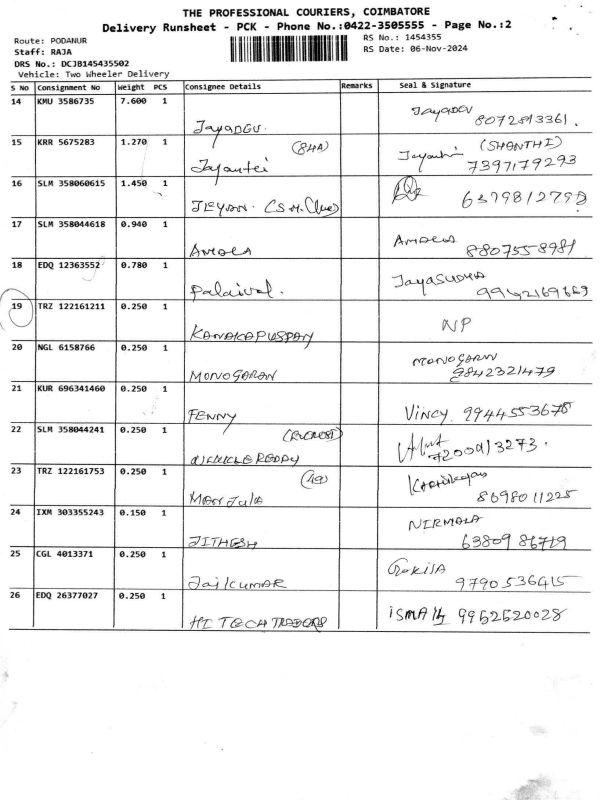 THE PROFESSIONAL COURIERS, COIMBATORE
Delivery Runsheet - PCK - Phone No.:0422-3505555 - Page No.:2
Route: PODANUR
RS No.: 1454355
Staff: RAJA
RS Date: 06-Nov-2024
DRS No.: DCJB145435502
Vehicle: Two Wheeler Delivery
S No Consignment No Weight PCS Consignee Details Remarks Seal & Signature
14 KMU 3586735 7.600 1
JAYADEV JAYADEV
8072813361.
15 KRR 5675283 1.270 1
(84A) (SHANTHI)
Jayanti 7397179293
16 SLM 358060615 1.450 1
JEYAN. 6379812792
17 SLM 358044618 0.940 1
AMALA AMALA
8807558981
18 EDQ 12363552 0.780 1
Palaival. JAYASUDHA
19 TRZ 122161211 0.250 1
KANAKAPUSPAM NP
20 NGL 6158766 0.250 1
MONOGARAN MONOGARAN
9842321479
21 KUR 696341460 0.250 1
FENNY VINCY 9944553678
22 SLM 358044241 0.250 1
REDDY 7200413273.
23 TRZ 122161753 0.250 1
(49)
MANJULA 8698011225
24 IXM 303355243 0.150 1
JITHESH NIRMALA
63809 86719
25 CGL 4013371 0.250 1
JAIKUMAR GOKILA
9790536415
26 EDQ 26377027 0.250 1
HI TECH TRADERS ISMAIL 9952520028